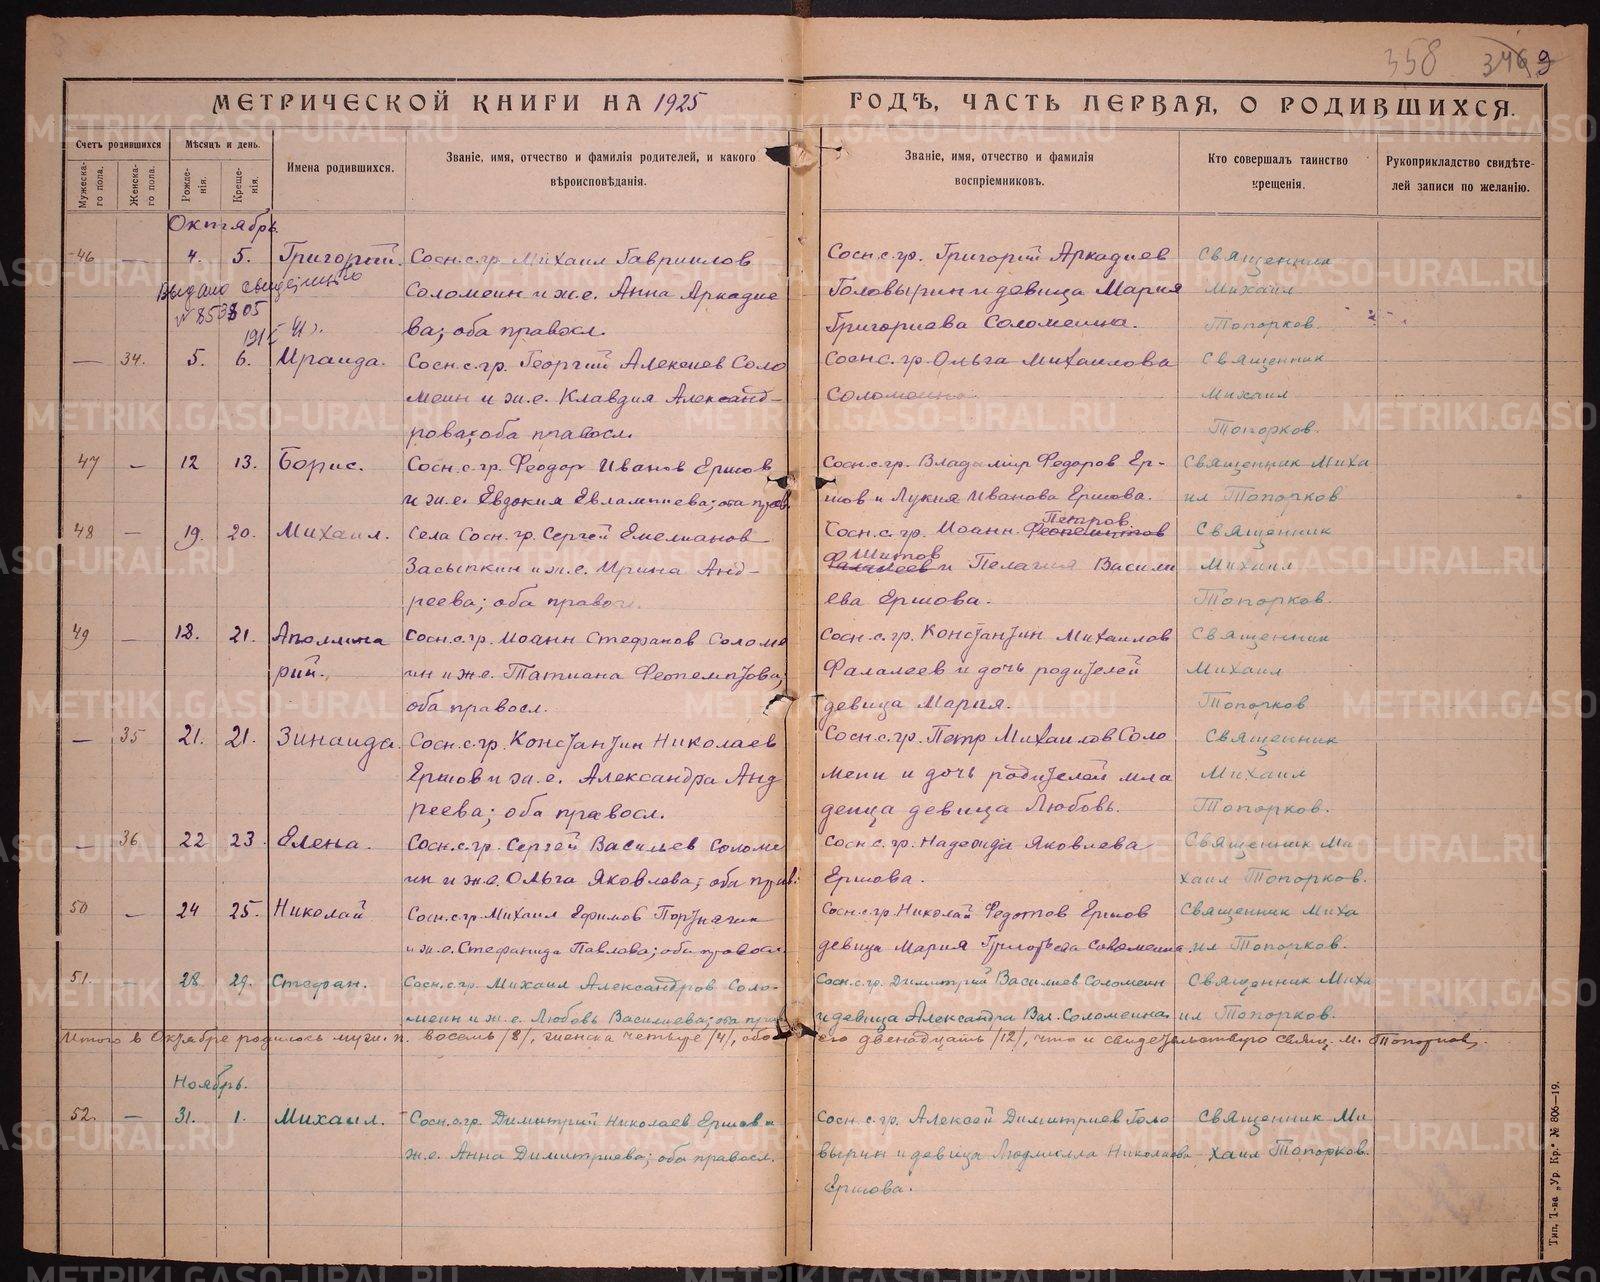 358 346 9
МЕТРИЧЕСКОЙ КНИГИ НА 1925 ГОДЪ, ЧАСТЬ ПЕРВАЯ, О РОДИВШИХСЯ.
Счетъ родившихся
Мужеска-го пола.
Женска-го пола.
Мѣсяцъ и день.
Рожде-нія.
Креще-нія.
Имена родившихся.
Званіе, имя, отчество и фамилія родителей, и какого
вѣроисповѣданія.
Званіе, имя, отчество и фамилія
воспріемниковъ.
Кто совершалъ таинство
крещенія.
Рукоприкладство свидѣте-
лей записи по желанію.
Октябрь.
46 — 4. 5. Григорій. Сосн. с. гр. Михаил Гавриилов
Соломеин и ж. е. Анна Аркадие
ва; оба правосл.
Сосн. с. гр. Григорий Аркадиев
Головырин и девица Мария
Григориева Соломеина.
Священник
Михаил
Топорков.
Выдано свидетельство
— 34. 5. 6. Ираида. Сосн. с. гр. Георгий Алексиев Соло
меин и ж. е. Клавдия Александ-
рова; оба правосл.
Сосн. с. гр. Ольга Михаилова
Соломеина.
Священник
Михаил
Топорков.
47 — 12 13. Борис. Сосн. с. гр. Феодор Иванов Ершов
и ж. е. Евдокия Евлампиева; оба прав.
Сосн. с. гр. Владимир Федоров Ер-
шов и Лукия Иванова Ершова.
Священник Миха
ил Топорков
48 — 19. 20. Михаил. Села Сосн. гр. Сергей Емелианов
Засыпкин и ж. е. Ирина Анд-
реева; оба правосл.
Сосн. с. гр. Иоанн Феопемптов Петров
Фалалеев Шитов и Пелагия Васили
ева Ершова.
Священник
Михаил
Топорков.
49 — 18. 21. Аполлина
рий. Сосн. с. гр. Иоанн Стефанов Соломе
ин и ж. е. Татиана Феопемптова;
оба правосл.
Сосн. с. гр. Константин Михаилов
Фалалеев и дочь родителей
девица Мария.
Священник
Михаил
Топорков
— 35 21. 21. Зинаида. Сосн. с. гр. Константин Николаев
Ершов и ж. е. Александра Анд
реева; оба правосл.
Сосн. с. гр. Петр Михаилов Соло
меин и дочь родителей мла
денца девица Любовь.
Священник
Михаил
Топорков.
— 36 22 23. Елена. Сосн. с. гр. Сергей Васильев Соломе
ин и ж. е. Ольга Яковлева; оба прав.
Сосн. с. гр. Надежда Яковлева
Ершова.
Священник Ми
хаил Топорков.
50 — 24 25. Николай Сосн. с. гр. Михаил Ефимов Портнягин
и ж. е. Стефанида Павлова; оба правосл.
Сосн. с. гр. Николай Федотов Ершов
девица Мария Григорьева Соломеина
Священник Миха
ил Топорков.
51. — 28. 29. Стефан. Сосн. с. гр. Михаил Александров Соло-
меин и ж. е. Любовь Василиева; оба прав
Сосн. с. гр. Димитрий Василиев Соломеин
и девица Александра Вас. Соломеина
Священник Миха
ил Топорков.
Итого в Октябре родилось муж. п. восемь /8/, женска четыре /4/, обо его двенадцать /12/, что и свидетельствую свящ. М. Топорков.
Ноябрь.
52. — 31. 1. Михаил. Сосн. с. гр. Димитрий Николаев Ершов и
ж. е. Анна Димитриева; оба правосл.
Сосн. с. гр. Алексей Димитриев Голо
вырин и девица Людмилла Николаева
Ершова.
Священник Ми
хаил Топорков.
Тип. Т-ва „Ур. Кр." № 806—19.
METRIKI.GASO-URAL.RU